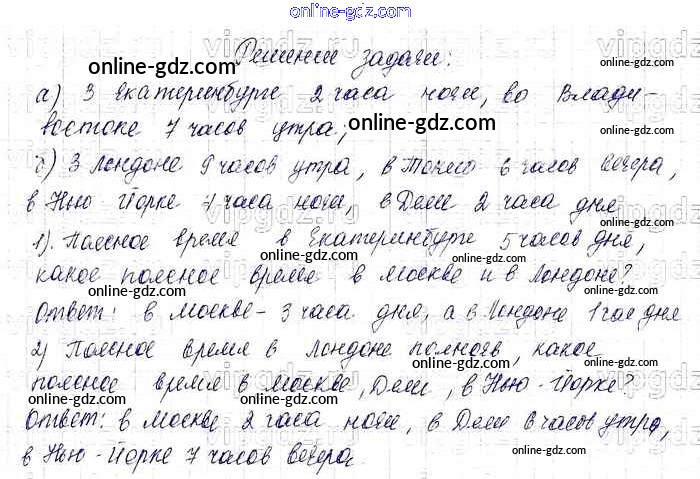 online-gdz.com
Решение задачи:
online-gdz.com
а) З Екатеринбурге 2 часа ночи, во Влади-
востоке 7 часов утра;
online-gdz.com
б) З Лондоне 9 часов утра, в Токио 6 часов вечера,
online-gdz.com
в Нью-Йорке 4 часа ночи, в Дели 2 часа дня
online-gdz.com
1). Поясное время в Екатеринбурге 5 часов дня,
online-gdz.com
какое поясное время в Москве и в Лондоне?
online-gdz.com
Ответ: в Москве - 3 часа дня, а в Лондоне 1 час дня
online-gdz.com
2) Поясное время в Лондоне полночь, какое
online-gdz.com
поясное время в Москве, Дели, в Нью-Йорке?
online-gdz.com
Ответ: в Москве 2 часа ночи, в Дели 6 часов утра,
online-gdz.com
в Нью-Йорке 7 часов вечера.
online-gdz.com